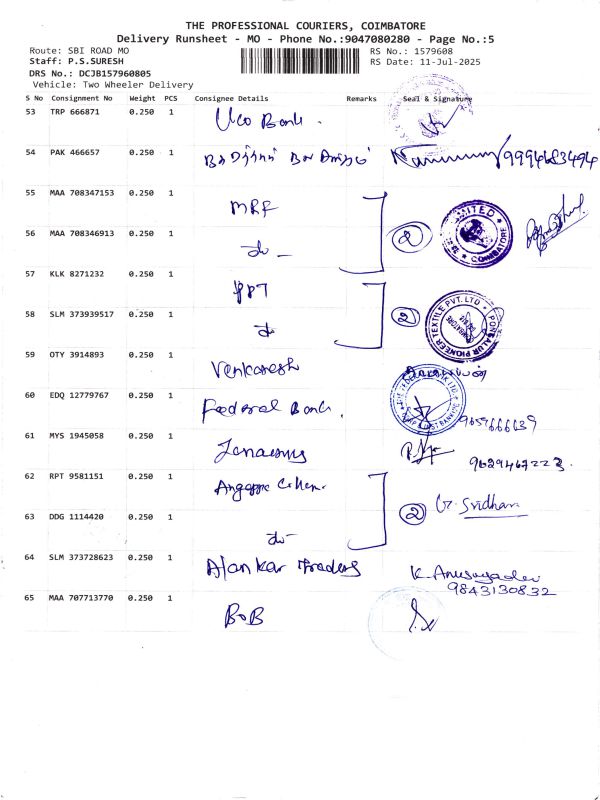 THE PROFESSIONAL COURIERS, COIMBATORE
Delivery Runsheet - MO - Phone No.:9047080280 - Page No.:5
Route: SBI ROAD MO
RS No.: 1579608
Staff: P.S.SURESH
RS Date: 11-Jul-2025
DRS No.: DCJB157960805
Vehicle: Two Wheeler Delivery
S No Consignment No Weight PCS Consignee Details Remarks Seal & Signature
53 TRP 666871 0.250 1 Uco Bank.
54 PAK 466657 0.250 1 9994683494
55 MAA 708347153 0.250 1 MRF
2 LIMITED COIMBATORE
56 MAA 708346913 0.250 1 do -
57 KLK 8271232 0.250 1 PPT
2 PIONEER TEXTILE PVT. LTD
58 SLM 373939517 0.250 1 do
59 OTY 3914893 0.250 1 Venkatesh
60 EDQ 12779767 0.250 1 Federal Bank. 9659666639
61 MYS 1945058 0.250 1 9629467223.
62 RPT 9581151 0.250 1
2 G. Sridhara
63 DDG 1114420 0.250 1 do-
64 SLM 373728623 0.250 1 Alankar Traders K. Anusuyadevi
9843130832
65 MAA 707713770 0.250 1 BOB